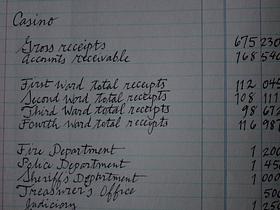 Casino
Gross receipts 675 230
Accounts receivable 768 540
First Ward total receipts 112 045
Second Word total receipts 108 111
Third Ward total receipts 98 672
Fourth Ward total receipts 116 987
Fire Department 1 200
Police Department 1 45
Sheriff's Department 1 000
Treasurer's Office 500
Judiciary 1 250